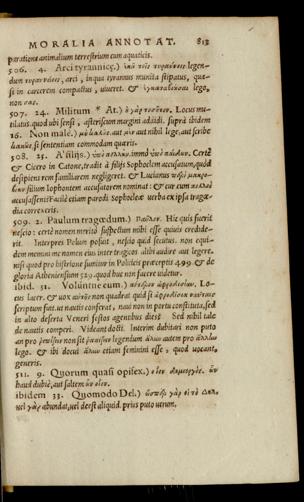 MORALIA ANNOTAT. 813
paratione animalium terrestrium cum aquaticis.
506. 4. Arci tyrannicę.) ὑπὸ τοῖς τυραννίοις legen-
dum τυραννείοις, arci, inqua tyrannus munita stipatus, qua-
si in carcerem compactus, viueret. & ἐγκαταδῦσαι lego,
non σας.
507. 24. Militum * At.) ὁ γὰρ τοσοῦτον. Locus mu-
tilatus. quod ubi sensi, asteriscum margini addidi. suprà ibidem
16. Non male.) μὴ κακῶς. aut μὴν aut nihil lege, aut scribe
κακῶς si sententiam commodam quæris.
508. 21. A filijs.) ὑπὸ πολλῶν. immò ὑπὸ παίδων. Certè
& Cicero in Catone, tradit à filijs Sophoclem accusatum, quòd
desipiens rem familiarem negligeret. & Lucianus
filium Iophontem accusatorem nominat: & cur eum πολλοὶ
accusassent? Facilè etiam parodi Sophocleæ verba ex ipsa tragœ-
dia correxeris.
509. 2. Paulum tragœdum.) Παῦλον. Hic quis fuerit
nescio: certè nomen meritò suspectum mihi esse quiuis credide-
rit. Interpres Pelum posuit, nescio quid secutus. non equi-
dem memini me nomen eius inter tragicos alibi audire aut legere.
nisi quod pro histrione sumitur in Politicis præceptis 499 & de
gloria Atheniensium 529. quod huc non facere uidetur.
ibid. 31. Voluntne eum.) Lo-
cus Luer. & uox αὐτὸν non quadrat quid si
scriptum sint. ut nautis conferat, naui non in portu constituta, sed
in alto deserta Veneri festos agentibus dies? Sed nihil tale
de nautis comperi. Videant docti. Interim dubitari non puto
an pro legendum ἄλων autem pro ἄλλων
lego. & ibi docui ἅλων etiam feminini esse, quod uocant,
generis.
511. 9. Quorum quasi opifex.) οἷον δημιουργὸς. ὧν
haud dubiè, aut saltem ὧν οἷον.
ibidem 33. Quomodo Del.) ὥσπερ γὰρ εἰ τὸ Δηλ.
uel γὰρ abundat, uel deest aliquid. prius puto uerum.